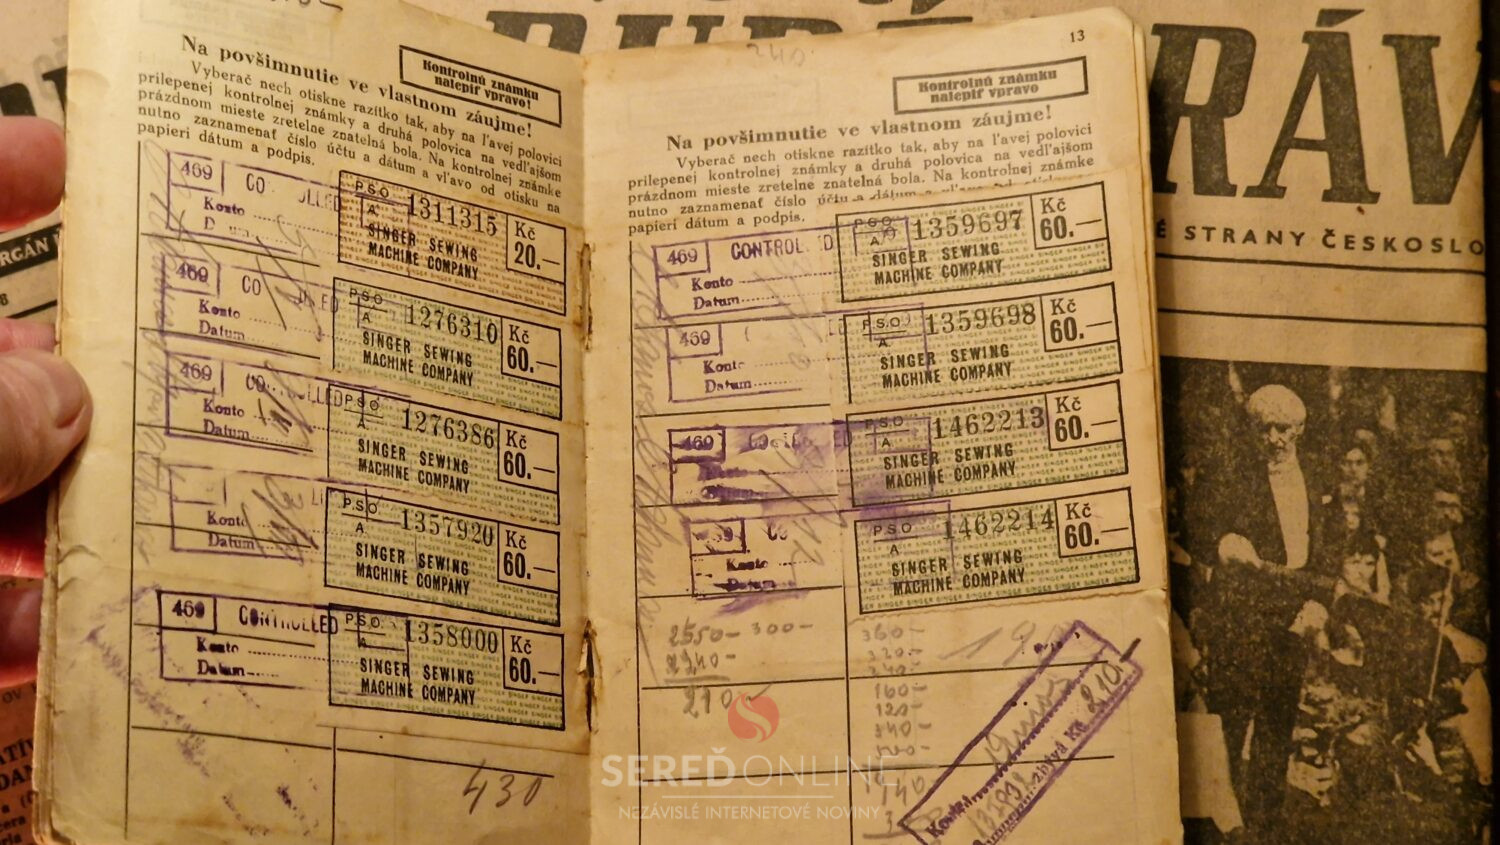 Na povšimnutie ve vlastnom záujme!
Kontrolnú známku
nalepiť vpravo!
Vyberač nech otiskne razítko tak, aby na ľavej polovici
prilepenej kontrolnej známky a druhá polovica na vedľajšom
prázdnom mieste zretelne znatelná bola. Na kontrolnej známke
nutno zaznamenať číslo účtu a dátum a vľavo od otisku na
papieri dátum a podpis.
469 CO OLLED
Konto
Datum
P.S.O.
A.
1311315
Kč
20.—
SINGER SEWING
MACHINE COMPANY
469 CO OLLED
Konto
Datum
P.S.O.
A.
1276310
Kč
60.—
SINGER SEWING
MACHINE COMPANY
469 CO OLLED
Konto
Datum
P.S.O.
A.
1276386
Kč
60.—
SINGER SEWING
MACHINE COMPANY
Konto
Datum
P.S.O.
A.
1357920
Kč
60.—
SINGER SEWING
MACHINE COMPANY
469 CONTROLLED
Konto
Datum
P.S.O.
A.
1358000
Kč
60.—
SINGER SEWING
MACHINE COMPANY
430
240
13
Kontrolnú známku
nalepiť vpravo
Na povšimnutie ve vlastnom záujme!
Vyberač nech otiskne razítko tak, aby na ľavej polovici
prilepenej kontrolnej známky a druhá polovica na vedľajšom
prázdnom mieste zretelne znatelná bola. Na kontrolnej známke
nutno zaznamenať číslo účtu a dátum a vľavo od otisku
papieri dátum a podpis.
469 CONTROL ED
Konto
Datum
P.S.O.
A.
1359697
Kč
60.—
SINGER SEWING
MACHINE COMPANY
469
Konto
Datum
P.S.O.
A.
1359698
Kč
60.—
SINGER SEWING
MACHINE COMPANY
469
P.S.O.
A.
1462213
Kč
60.—
SINGER SEWING
MACHINE COMPANY
Konto
Datum
P.S.O.
A
1462214
Kč
60.—
SINGER SEWING
MACHINE COMPANY
2550- 300-
2340-
210
360-
320-
240-
160-
120-
Kč 210
RUDÉ PRÁV
É STRANY ČESKOSLO
ORGÁN
SEREĎ ONLINE
NEZÁVISLÉ INTERNETOVÉ NOVINY